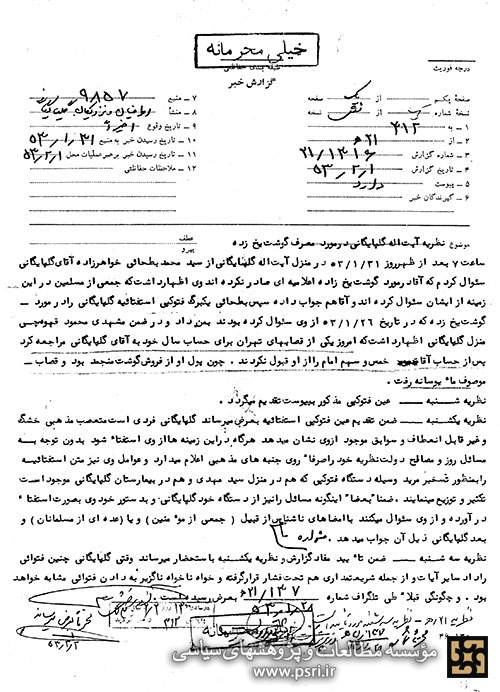 خیلی محرمانه
طبقه بندی حفاظتی
درجه فوریت
گزارش خبر
صفحه یکم از یک صفحه
نسخه شماره از نسخه
۱ – به ۳۱۲
۲ – از ۲۱ ه
۳ – شماره گزارش ۲۱/۱۳۱۶
۴ – تاریخ گزارش ۵۳/۲/۱
۵ – پیوست دارد
۶ – گیرندگان خبر
۷ – منبع ۹۸۵۷
۸ – منشأ اطرافیان و نزدیکان گلپایگانی
۹ – تاریخ وقوع اخیراً
۱۰ – تاریخ رسیدن خبر به منبع ۵۳/۱/۳۱
۱۱ – تاریخ رسیدن خبر برهبر عملیات محل ۵۳/۲/۱
۱۲ – ملاحظات حفاظتی
موضوع نظریه آیت اله گلپایگانی در مورد مصرف گوشت یخ زده
عطف
پیرو
ساعت ۷ بعد از ظهر روز ۵۳/۱/۳۱ در منزل آیت اله گلپایگانی از سید محمد بطحائی خواهرزاده آقای گلپایگانی
سئوال کردم که آقا در مورد گوشت یخ زده اعلامیه ای صادر نکرده اند وی اظهار داشت که جمعی از مسلمین در این
زمینه از ایشان سئوال کرده اند و آقا هم جواب داده سپس بطحائی یکبرگ فتوکپی استفتائیه گلپایگانی را در مورد
گوشت یخ زده که در تاریخ ۵۳/۱/۲۶ از وی سئوال کرده بودند بمن داد و در ضمن مشهدی محمود قهوه چی
منزل گلپایگانی اظهار داشت که امروز یکی از قصابهای تهران برای حساب سال خود به آقای گلپایگانی مراجعه کرد
پس از حساب آقا خمس و سهم امام را از او قبول نکردند . چون پول او از فروش گوشت منجمد بود و قصاب
موصوف مأیوسانه رفت .
نظریه شنبه – عین فتوکپی مذکور بپیوست تقدیم میگردد .
نظریه یکشنبه – ضمن تقدیم عین فتوکپی استفتائیه بعرض میرساند گلپایگانی فردی است متعصب مذهبی خشک
و غیر قابل انعطاف و سوابق موجود ازوی نشان میدهد هرگاه در این زمینه ها از وی استفتاء شود بدون توجه به
مسائل روز و مصالح دولت نظریه خود را صرفاً روی جنبه های مذهبی اعلام میدارد و عوامل وی نیز متن استفتائیه
را بمنظور تسخیر مرید وسیله دستگاه فتوکپی که هم در منزل سید مهدی و هم در بیمارستان گلپایگانی موجود است
تکثیر و توزیع مینمایند . ضمناً بعضاً اینگونه مسائل را نیز از دستگاه خود گلپایگانی و بدستور خود وی بصورت استفتاء
در آورده و از وی سئوال میکنند با امضاهای ناشناس از قبیل ( جمعی از مؤمنین ) و یا ( عده ای از مسلمانان ) و
بعد گلپایگانی ذیل آن جواب میدهد .
نظریه سه شنبه – ضمن تأیید مفاد گزارش و نظریه یکشنبه باستحضار میرساند وقتی گلپایگانی چنین فتوائی
را داد سایر آیات و از جمله شریعتمداری هم تحت فشار قرار گرفته و خواه ناخواه ناگزیر به دادن فتوائی مشابه خواهد
بود . و چگونگی قبلاً طی تلگراف شماره ۲۱/۱۴۷ ه بعرض رسیده است
خیلی محرمانه
مؤسسه مطالعات و پژوهشهای سیاسی
www.psri.ir